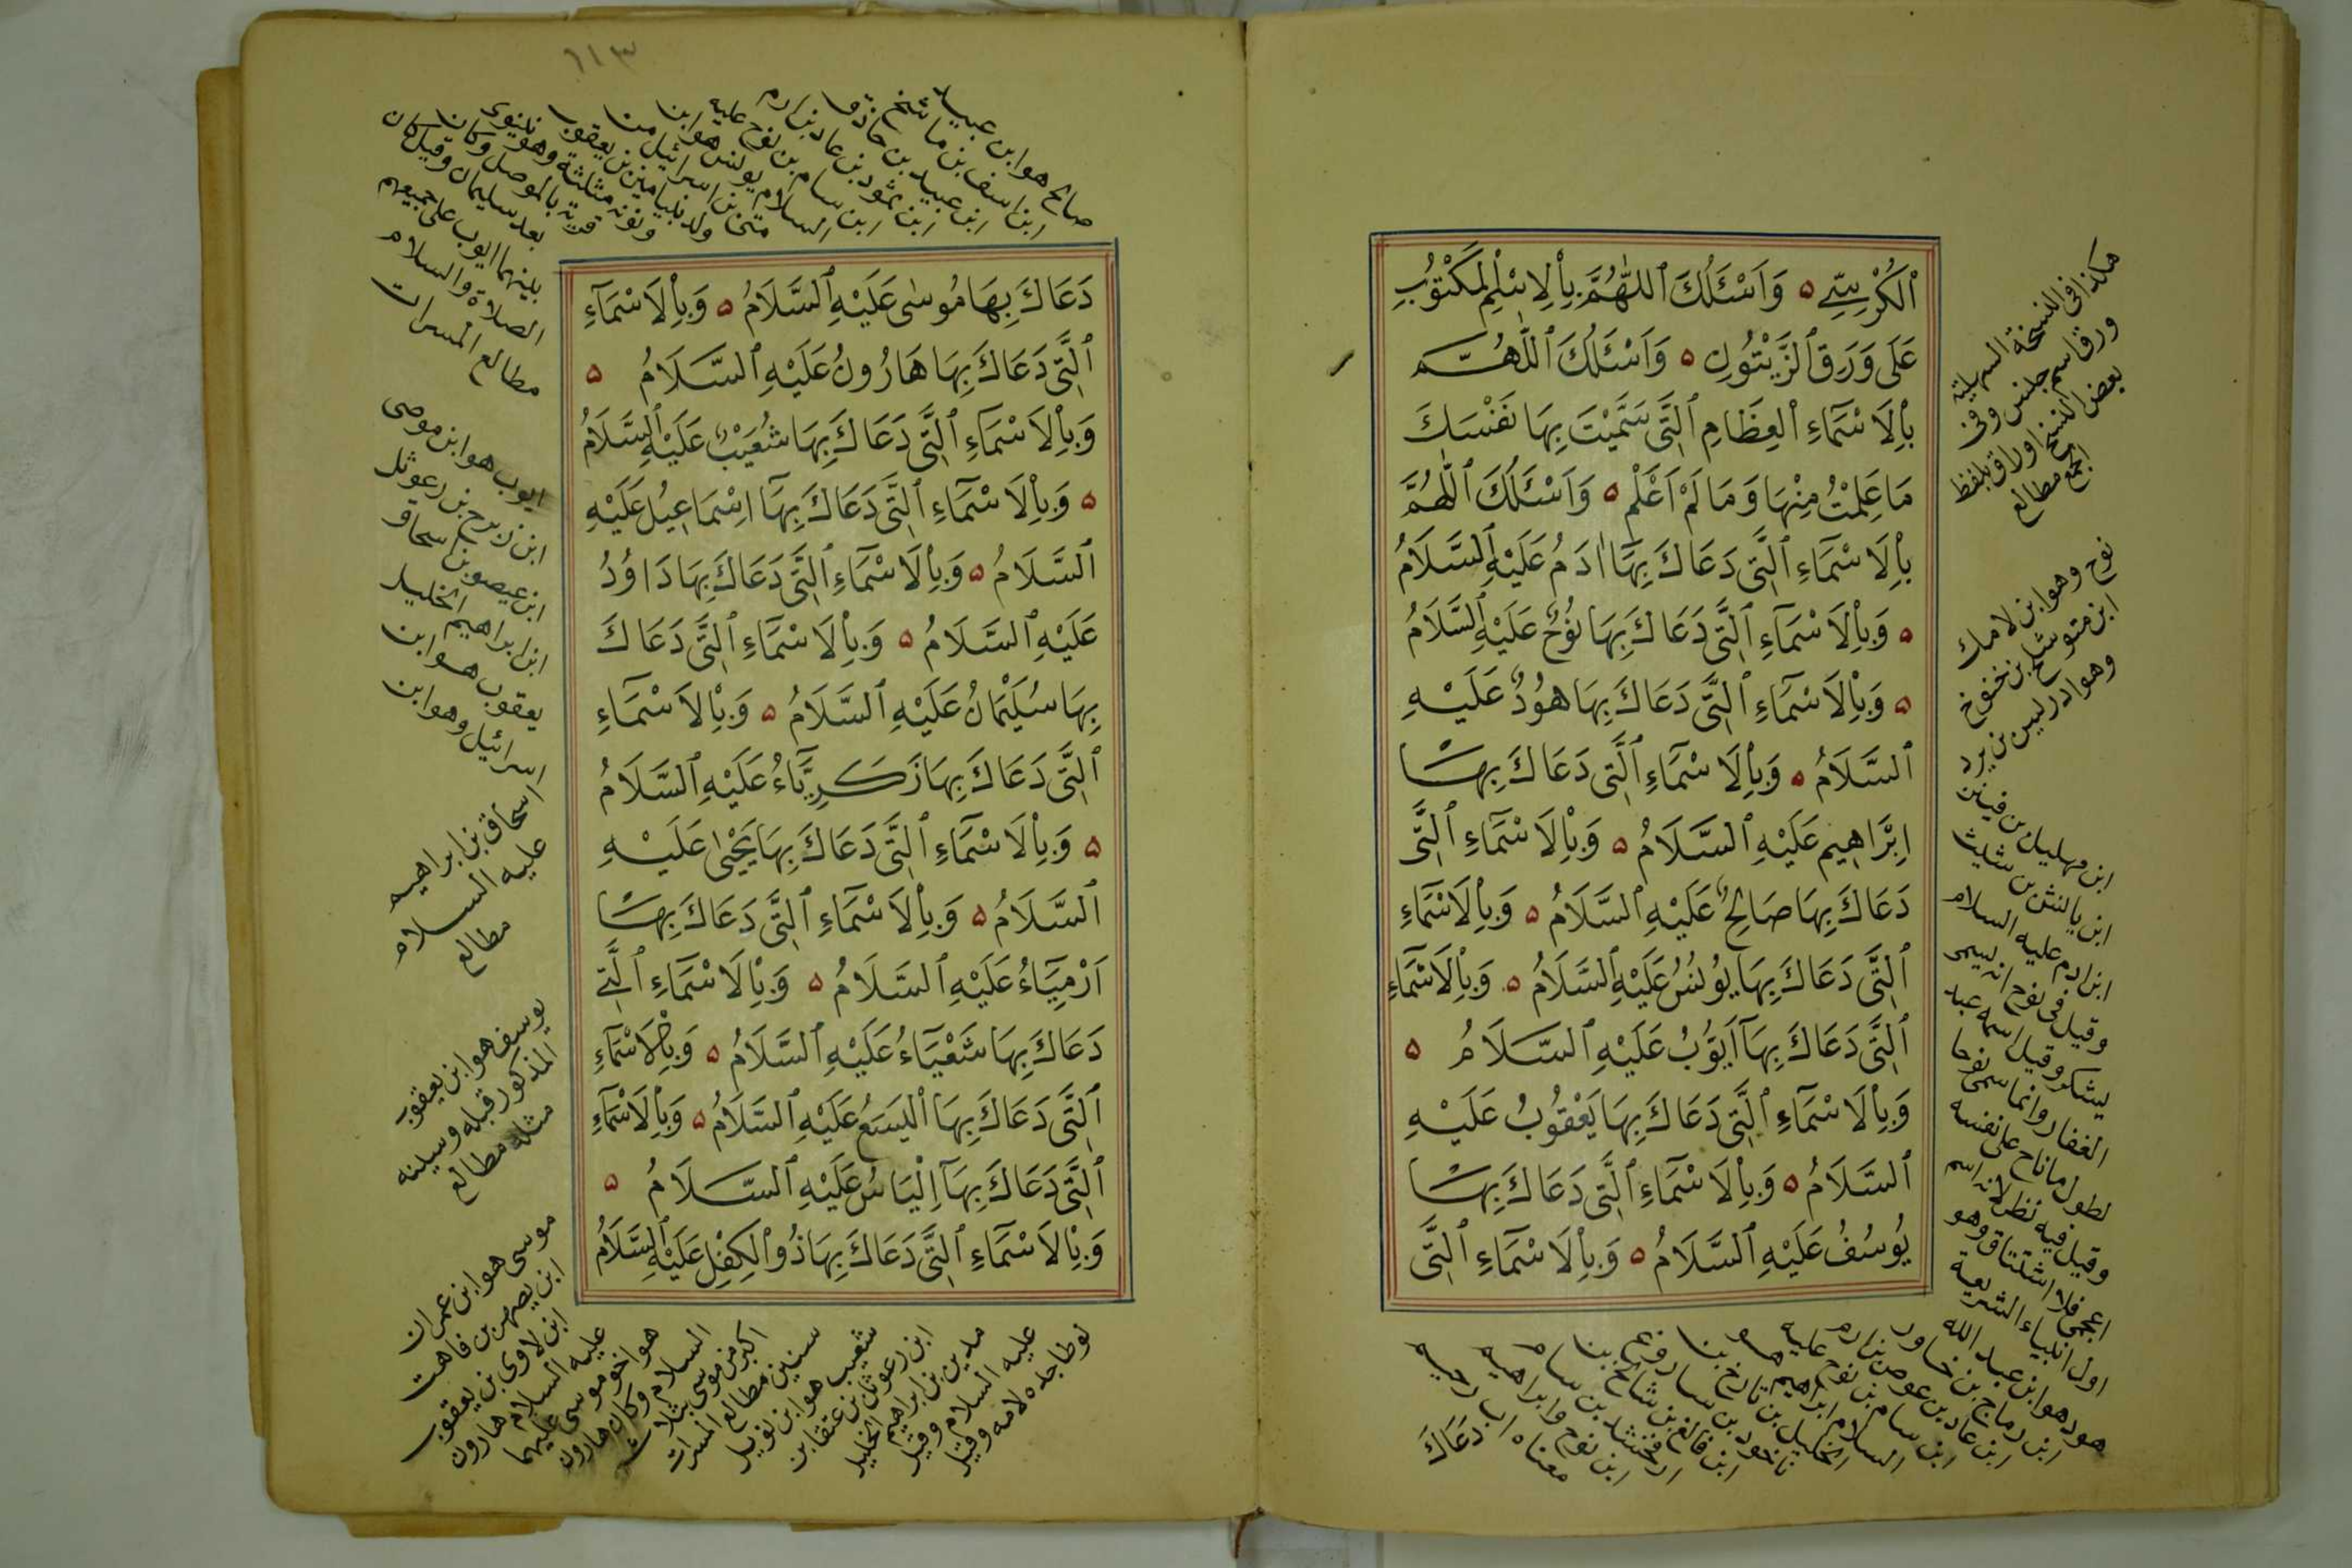 اَلْكُرْسِيِّ ۵ وَاَسْئَلُكَ اَللّٰهُمَّ بِاْلِاسْمِ اْلمَكْتُوْبِ
عَلَى وَرَقِ اَلزَّيْتُونِ ۵ وَاَسْئَلُكَ اَللّٰهُمَّ
بِاْلَاسْمَآءِ اْلعِظَامِ اَلَّتِى سَمَّيْتَ بِهَا نَفْسَكَ
مَا عَلِمْتُ مِنْهَا وَمَا لَمْ اَعْلَمْ ۵ وَاَسْئَلُكَ اَللّٰهُمَّ
بِاْلَاسْمَآءِ اَلَّتِى دَعَاكَ بِهَا اٰدَمُ عَلَيْهِ اَلسَّلَامُ
۵ وَبِاْلَاسْمَآءِ اَلَّتِى دَعَاكَ بِهَا نُوْحٌ عَلَيْهِ اَلسَّلَامُ
۵ وَبِاْلَاسْمَآءِ اَلَّتِى دَعَاكَ بِهَا هُوْدٌ عَلَيْهِ
اَلسَّلَامُ ۵ وَبِاْلَاسْمَآءِ اَلَّتِى دَعَاكَ بِهَا
اِبْرَاهِيمُ عَلَيْهِ اَلسَّلَامُ ۵ وَبِاْلَاسْمَآءِ اَلَّتِى
دَعَاكَ بِهَا صَالِحٌ عَلَيْهِ اَلسَّلَامُ ۵ وَبِاْلَاسْمَآءِ
اَلَّتِى دَعَاكَ بِهَا يُوْنُسُ عَلَيْهِ اَلسَّلَامُ ۵ وَبِاْلَاسْمَآءِ
اَلَّتِى دَعَاكَ بِهَآ اَيُّوْبُ عَلَيْهِ اَلسَّلَامُ ۵
وَبِاْلَاسْمَآءِ اَلَّتِى دَعَاكَ بِهَا يَعْقُوْبُ عَلَيْهِ
اَلسَّلَامُ ۵ وَبِاْلَاسْمَآءِ اَلَّتِى دَعَاكَ بِهَا
يُوْسُفُ عَلَيْهِ اَلسَّلَامُ ۵ وَبِاْلَاسْمَآءِ اَلَّتِى
دَعَاكَ
هكذا فى النسخة السهلية
ورق اسم جنس وفى
بعض النسخ اوراق بلفظ
الجمع مطالع
نوح وهو ابن لامك
ابن متوشلخ بن خنوخ
وهو ادريس بن يرد
ابن مهليل بن قينن
ابن يانش بن شيث
ابن ادم عليه السلام
وقيل فى نوح انه يسمى
يشكر وقيل اسمه عبد
الغفار وانما سمى نوحا
لطول ما ناح على نفسه
وقيل فيه نظر لانه اسم
اعجمى فلا اشتقاق وهو
اول انبياء الشريعة
هود هو ابن عبد الله
ابن رماح بن خاور
ابن عاد بن عوص بن ارم
ابن سام بن نوح عليه
السلام ابراهيم هو
الخليل بن تارخ بن
ناخور بن ساروغ
ابن فالغ بن شالخ بن
ارفخشد بن سام
ابن نوح وابراهيم
معناه اب رحيم
١١٣
دَعَاكَ بِهَا مُوسٰى عَلَيْهِ اَلسَّلَامُ ۵ وَبِاْلَاسْمَآءِ
اَلَّتِى دَعَاكَ بِهَا هَارُونُ عَلَيْهِ اَلسَّلَامُ ۵
وَبِاْلَاسْمَآءِ اَلَّتِى دَعَاكَ بِهَا شُعَيْبٌ عَلَيْهِ اَلسَّلَامُ
۵ وَبِاْلَاسْمَآءِ اَلَّتِى دَعَاكَ بِهَآ اِسْمَاعِيْلُ عَلَيْهِ
اَلسَّلَامُ ۵ وَبِاْلَاسْمَآءِ اَلَّتِى دَعَاكَ بِهَا دَاوُدُ
عَلَيْهِ اَلسَّلَامُ ۵ وَبِاْلَاسْمَآءِ اَلَّتِى دَعَاكَ
بِهَا سُلَيْمَانُ عَلَيْهِ اَلسَّلَامُ ۵ وَبِاْلَاسْمَآءِ
اَلَّتِى دَعَاكَ بِهَا زَكَرِيَّاءُ عَلَيْهِ اَلسَّلَامُ
۵ وَبِاْلَاسْمَآءِ اَلَّتِى دَعَاكَ بِهَا يَحْيٰى عَلَيْهِ
اَلسَّلَامُ ۵ وَبِاْلَاسْمَآءِ اَلَّتِى دَعَاكَ بِهَا
اَرْمِيَآءُ عَلَيْهِ اَلسَّلَامُ ۵ وَبِاْلَاسْمَآءِ اَلَّتِى
دَعَاكَ بِهَا شَعْيَاءُ عَلَيْهِ اَلسَّلَامُ ۵ وَبِاْلَاسْمَآءِ
اَلَّتِى دَعَاكَ بِهَا اْليَسَعُ عَلَيْهِ اَلسَّلَامُ ۵ وَبِاْلَاسْمَآءِ
اَلَّتِى دَعَاكَ بِهَآ اِلْيَاسُ عَلَيْهِ اَلسَّلَامُ ۵
وَبِاْلَاسْمَآءِ اَلَّتِى دَعَاكَ بِهَا ذُو اْلكِفْلِ عَلَيْهِ اَلسَّلَامُ
صالح هو ابن عبيد
ابن اسف بن ماشخ
ابن عبيد بن حاذر
ابن ثمود بن عاد بن ارم
ابن سام بن نوح عليه
السلام يونس هو ابن
متى بن اسرائيل من
ولد بنيامين بن يعقوب
ونونه مثلثة وهو نينوى
قرية بالموصل وكان
بعد سليمان وقيل كان
بينهما ايوب على جميعهم
الصلاة والسلام
مطالع المسرات
ايوب هو ابن موصى
ابن زيرح بن رعوئل
ابن عيصو بن اسحاق
ابن ابراهيم الخليل
يعقوب هو ابن
اسرائيل وهو ابن
اسحاق بن ابراهيم
عليه السلام
مطالع
يوسف هو ابن يعقوب
المذكور قبله وسينه
مثلثة مطالع
موسى هو ابن عمران
ابن يصهر بن قاهت
ابن لاوى بن يعقوب
عليه السلام هارون
هو اخو موسى عليهما
السلام وكان هارون
اكبر من موسى بثلاث
سنين مطالع المسرات
شعيب هو ابن نويل
ابن رعوئل بن عنقا بن
مدين بن ابراهيم الخليل
عليه السلام وقيل
لوطا جده لامه وقيل